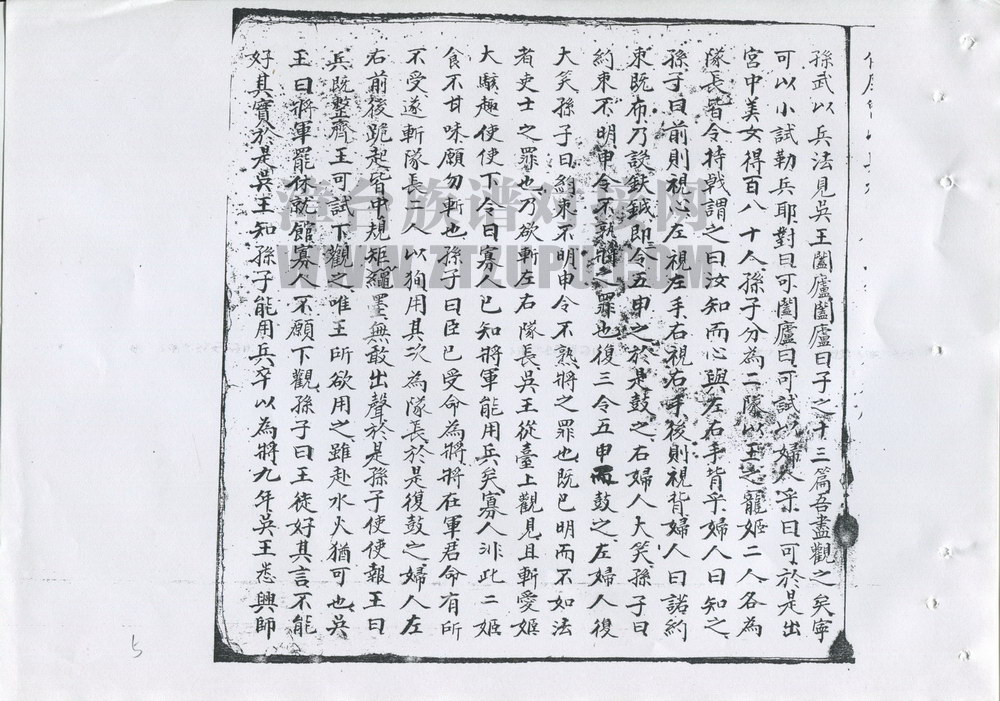 孫武以兵法見吳王闔廬闔廬曰子之十三篇吾盡觀之矣寧
可以小試勒兵耶對曰可闔廬曰可試以婦人乎曰可於是出
宮中美女得百八十人孫子分為二隊以王之寵姬二人各為
隊長皆令持戟謂之曰汝知而心與左右手背乎婦人曰知之
孫子曰前則視心左視左手右視右手後則視背婦人曰諾約
束既布乃設鈇鉞即令五申之於是鼓之右婦人大笑孫子曰
約束不明申令不熟將之罪也復三令五申而鼓之左婦人復
大笑孫子曰約束不明申令不熟將之罪也既已明而不如法
者吏士之罪也乃欲斬左右隊長吳王從臺上觀見且斬愛姬
大駭趣使使下令曰寡人已知將軍能用兵矣寡人非此二姬
食不甘味願勿斬也孫子曰臣已受命為將將在軍君命有所
不受遂斬隊長二人以狥用其次為隊長於是復鼓之婦人左
右前後跪起皆中規矩繩墨無敢出聲於是孫子使使報王曰
兵既整齊王可試下觀之唯王所欲用之雖赴水火猶可也吳
王曰將軍罷休就館寡人不願下觀孫子曰王徒好其言不能
好其實於是吳王知孫子能用兵卒以為將九年吳王悉興師
漳台族谱对接网
WWW.ZTZUPU.COM
5